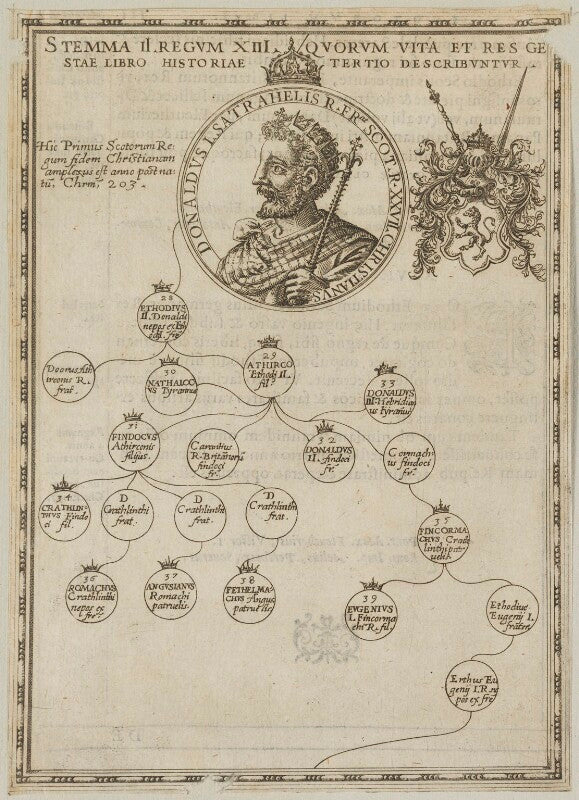 STEMMA II. REGVM XIII. QVORVM VITA ET RES GE
STAE LIBRO HISTORIAE TERTIO DESCRIBVNTVR
DONALDVS I. SATRAHELIS R. FR. SCOT. R. XXVII. CHRISTIANVS
Hic Primus Scotorum Re
gum fidem Christianam
amplexus est anno post na
tũ, Chrm̃, 203.
28
ETHODIVS
II. Donaldi
nepos ex
fre
Doorus Ath
irconis R.
frat.
30
NATHALOC
VS Tyrannus
29
ATHIRCO
Ethodi II.
fil.
33
DONALDVS
III. Hebridian
us tyranus
31
FINDOCVS
Athirconis
filius.
Carantius
R. Britanorũ
findoci
fr.
32
DONALDVS
II. findoci
fr.
Cormach
us findoci
fr.
34
CRATHLIN
THVS Findo
ci fil.
D
Crathlinthi
frat.
D
Crathlinthi
frat.
D
Crathlinthi
frat.
35
FINCORMA
CHVS Crath
linthi patr
uelis
36
ROMACHVS
Crathlinthi
nepos ex
fre
37
ANGVSIANVS
Romachi
patruelis.
38
FETHELMA
CHVS Angus
patruelis
39
EVGENIVS
I. Fincorma
chi R. fil.
Ethodius
Eugenij I.
frater.
Erthus Eu
genij I. R. ne
pos ex fre